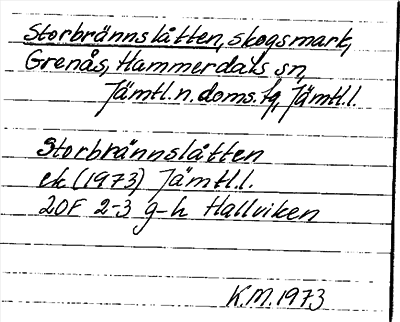 Storbrännslåtten, skogsmark,
Grenås, Hammerdals sn,
Jämtl. n. doms. tg, Jämtl. l.
Storbrännslåtten
ek (1973) Jämtl. l.
20F 2-3 g-h Hallviken
K.M. 1973